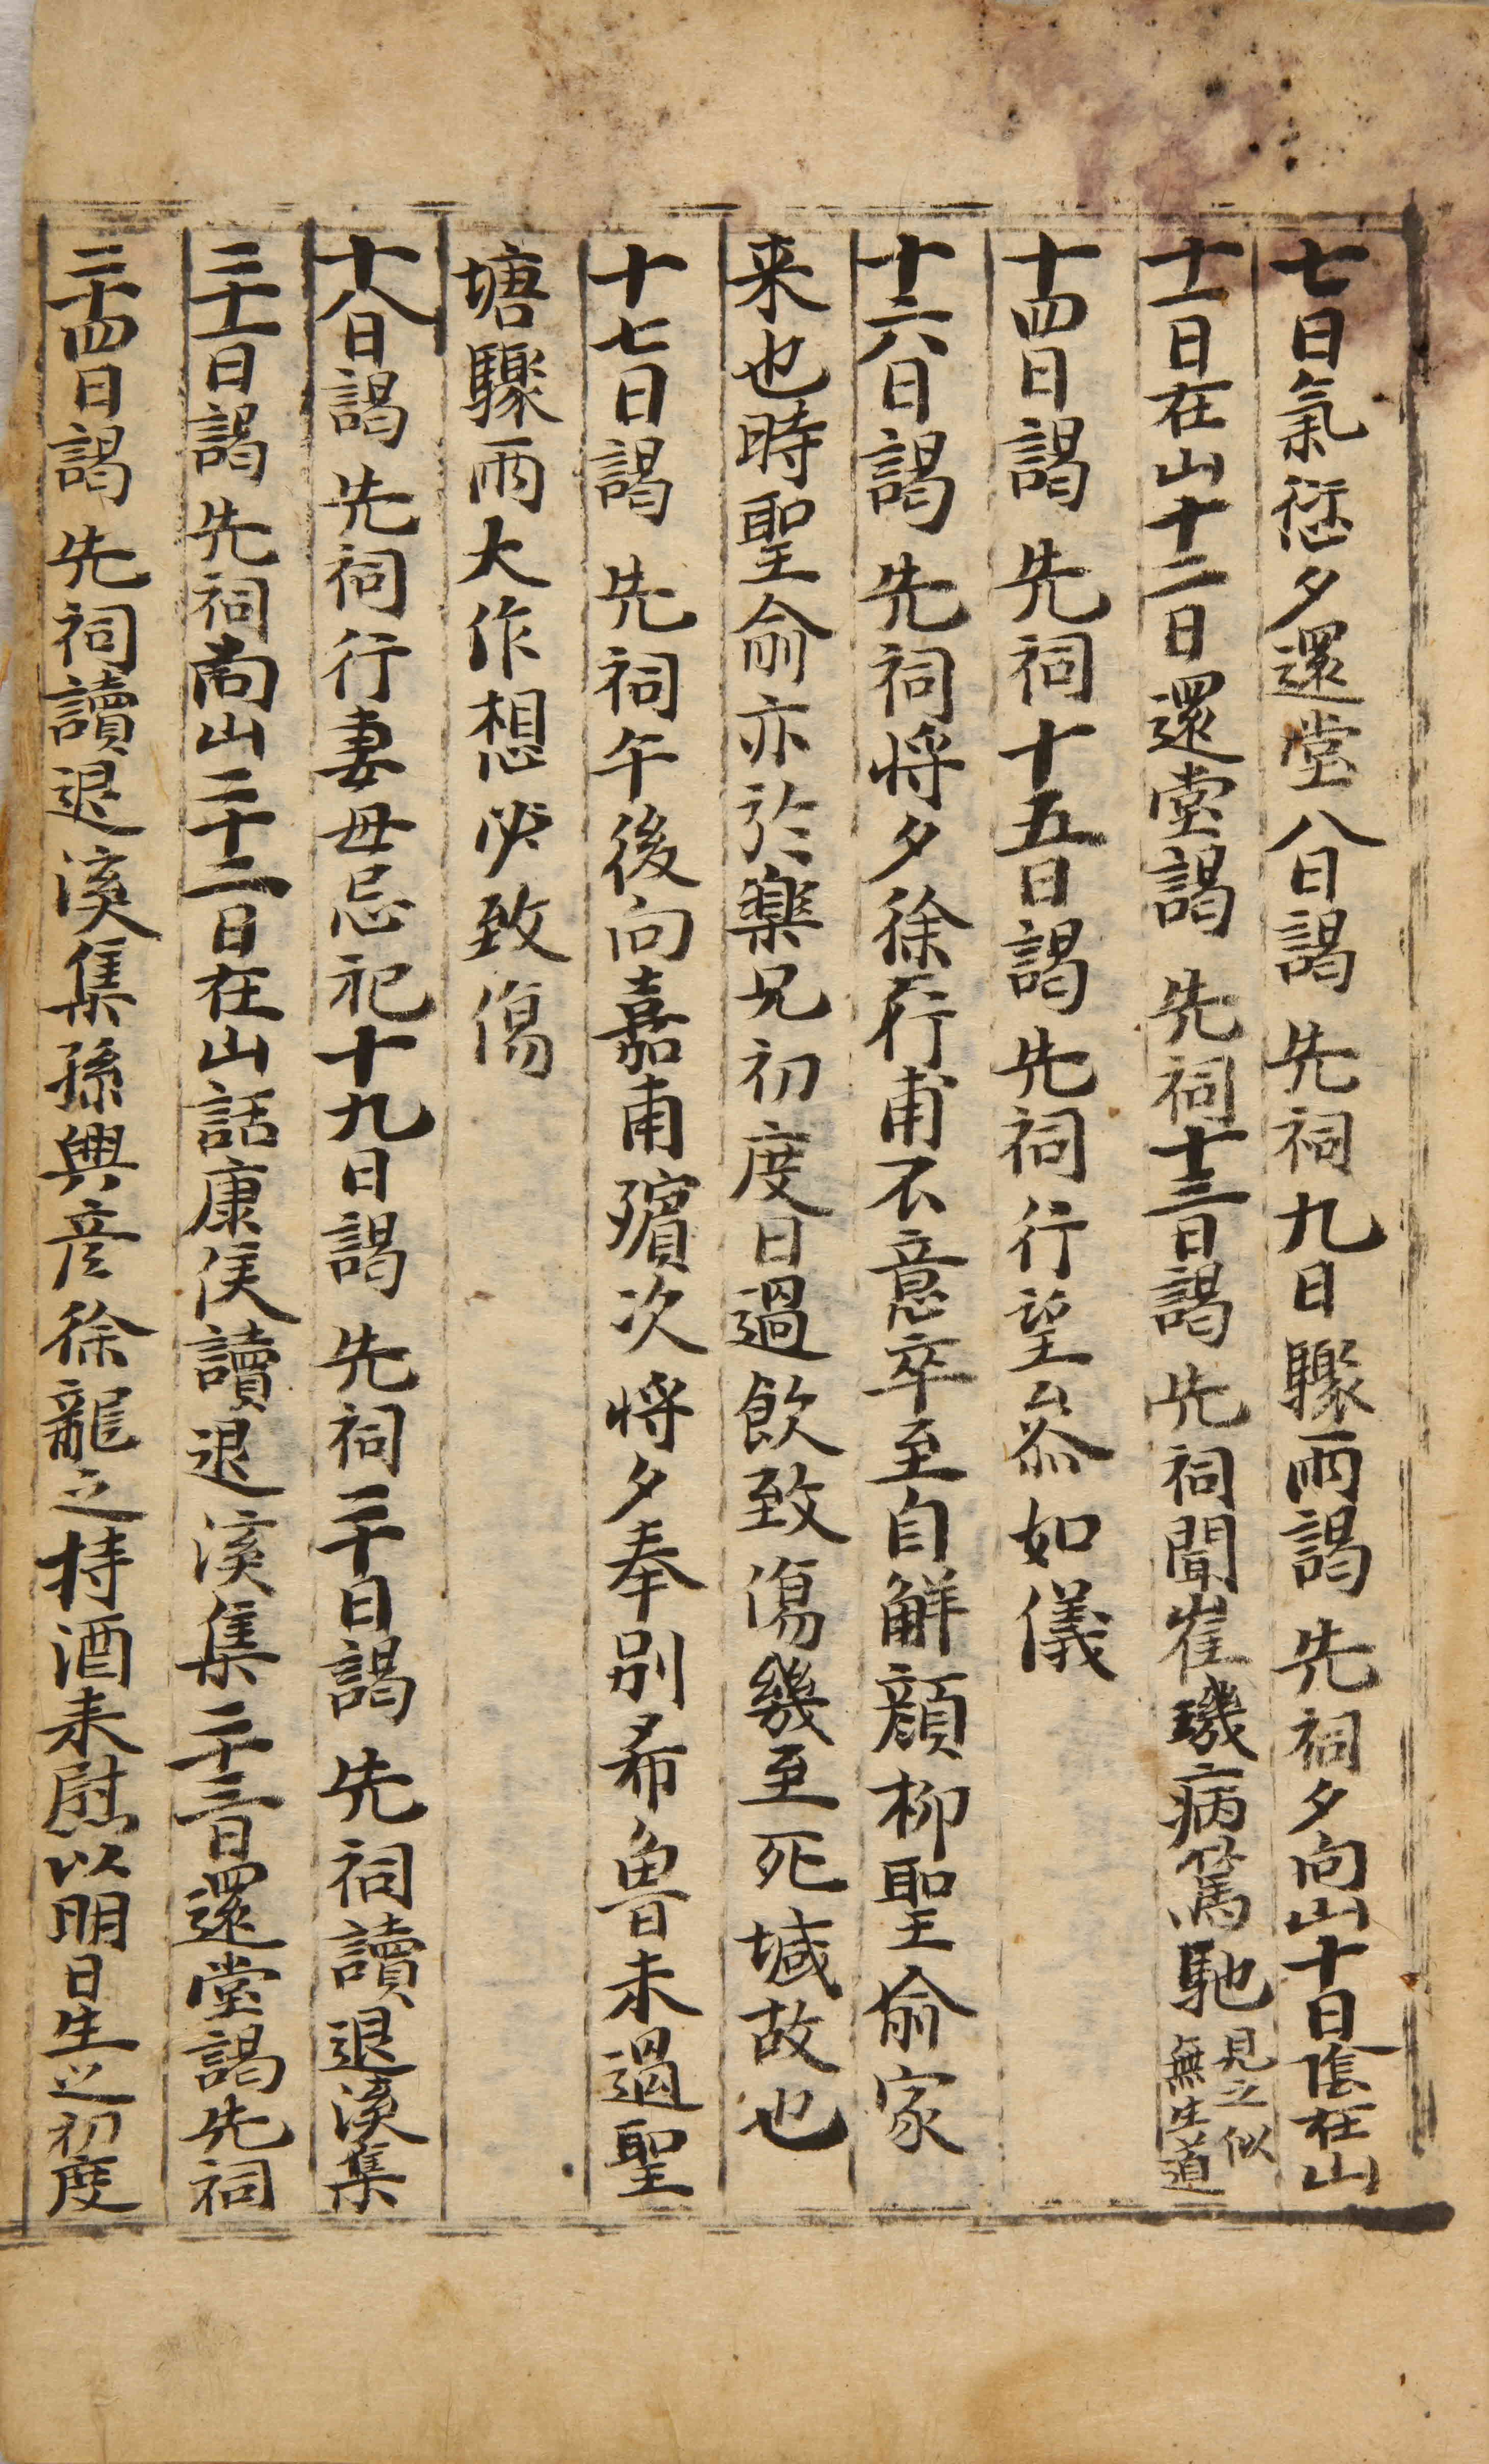 七日氣愆夕還堂八日謁 先祠九日驟雨謁 先祠夕向山十日陰在山
十一日在山十二日還堂謁 先祠十三日謁 先祠聞崔璣病篤馳見之似無生道
十四日謁 先祠十五日謁 先祠行望叅如儀
十六日謁 先祠将夕徐行甫不意卒至自解顔柳聖俞家
来也時聖俞亦於樂兄初度日過飲致傷幾至死域故也
十七日謁 先祠午後向嘉甫殯次将夕奉别希魯未過聖
塘驟雨大作想必致傷
十八日謁 先祠行妻母忌祀十九日謁 先祠二十日謁 先祠讀退溪集
二十一日謁 先祠向山二十二日在山話康侯讀退溪集二十三日還堂謁先祠
二十四日謁 先祠讀退溪集孫興彦徐龍之持酒来慰以明日生之初度